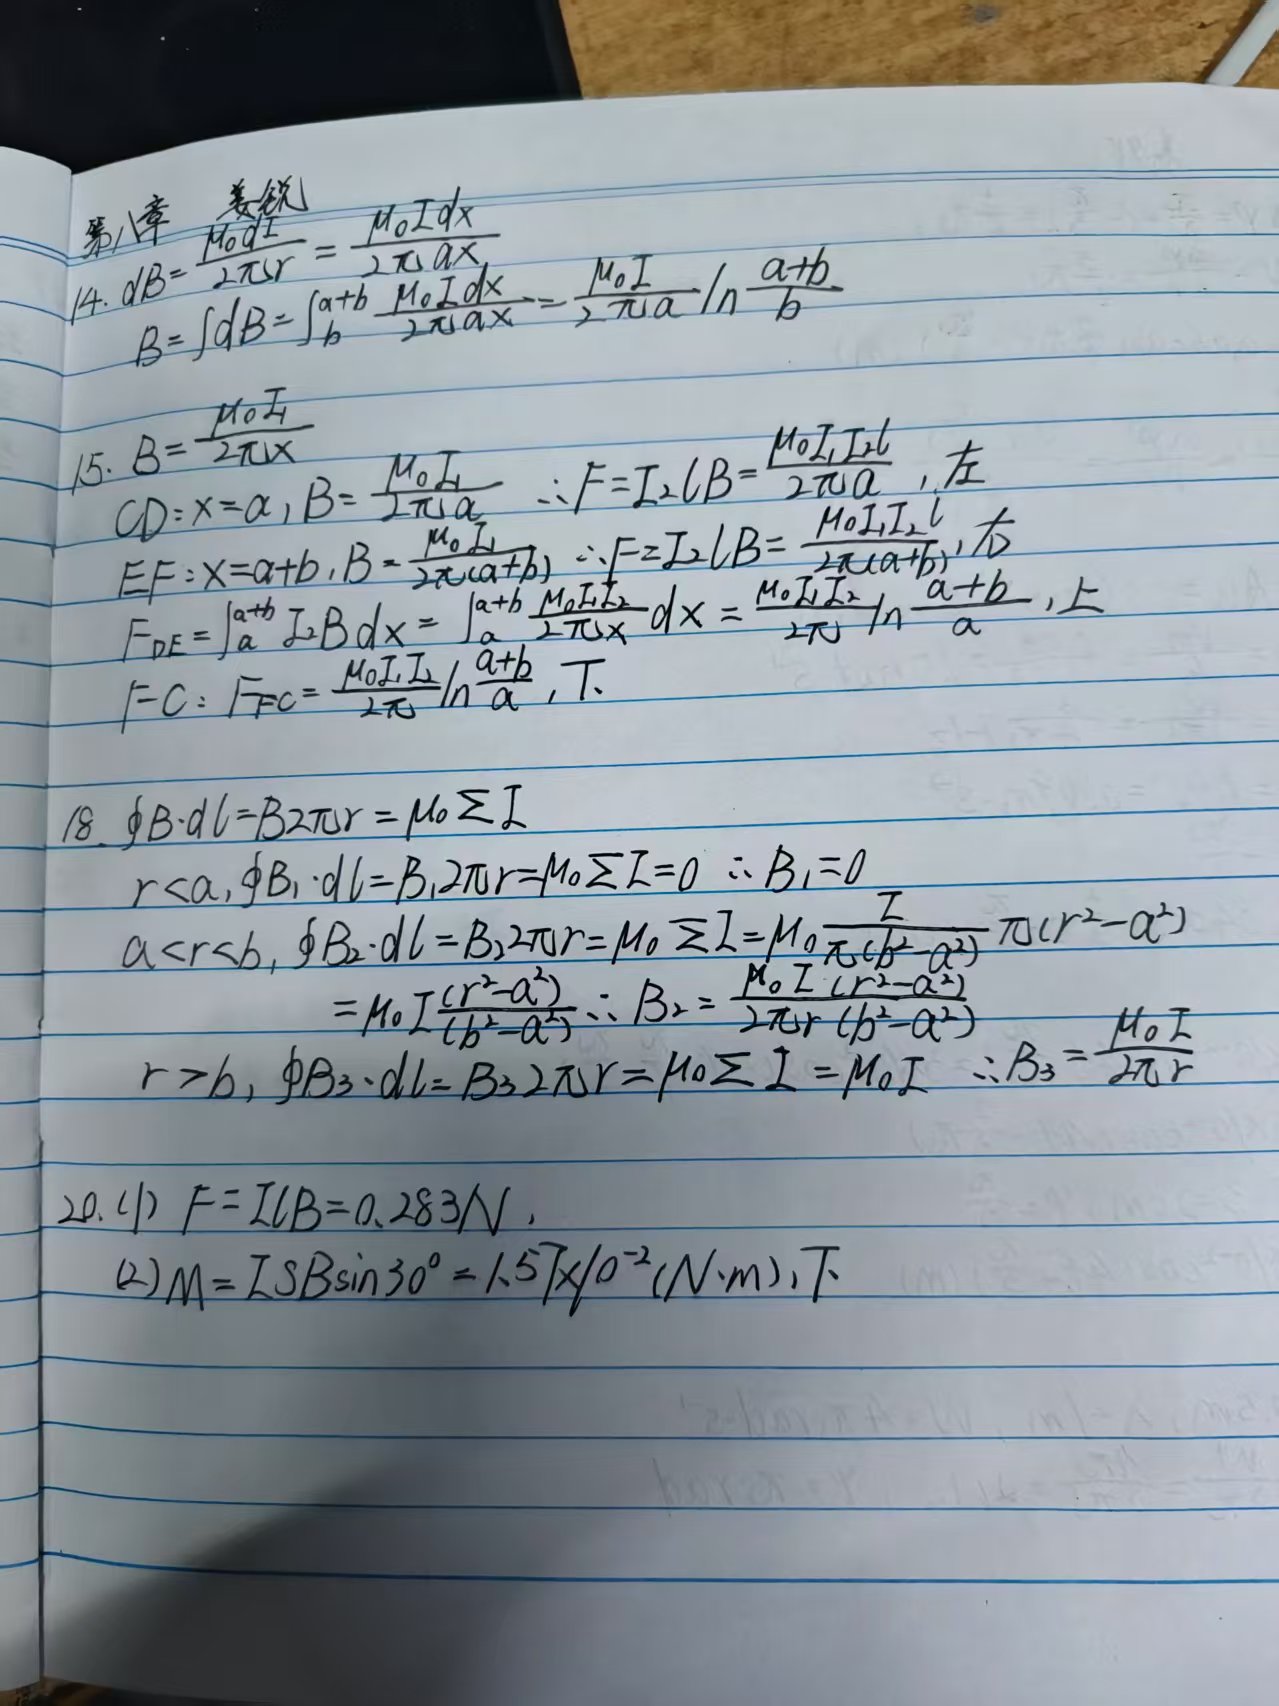 第八章 姜锐
14. dB = μ₀dI/2πr = μ₀Idx/2πax
B = ∫dB = ∫_b^{a+b} μ₀Idx/2πax = μ₀I/2πa ln (a+b)/b
15. B = μ₀I₁/2πx
CD: x=a, B = μ₀I₁/2πa ∴F=I₂lB = μ₀I₁I₂l/2πa, 左
EF: x=a+b, B = μ₀I₁/2π(a+b) ∴F=I₂lB = μ₀I₁I₂l/2π(a+b), 右
F_DE = ∫_a^{a+b} I₂Bdx = ∫_a^{a+b} μ₀I₁I₂/2πx dx = μ₀I₁I₂/2π ln (a+b)/a, 上
FC: F_FC = μ₀I₁I₂/2π ln (a+b)/a, 下.
18. ∮B·dl=B2πr=μ₀ΣI
r<a, ∮B₁·dl=B₁2πr=μ₀ΣI=0 ∴B₁=0
a<r<b, ∮B₂·dl=B₂2πr=μ₀ΣI=μ₀ I/π(b²-a²) π(r²-a²)
=μ₀I (r²-a²)/(b²-a²) ∴B₂= μ₀I(r²-a²)/2πr(b²-a²)
r>b, ∮B₃·dl=B₃2πr=μ₀ΣI=μ₀I ∴B₃= μ₀I/2πr
20.(1) F=IlB=0.283N.
(2) M=ISBsin30°=1.57×10⁻²(N·m), 下.